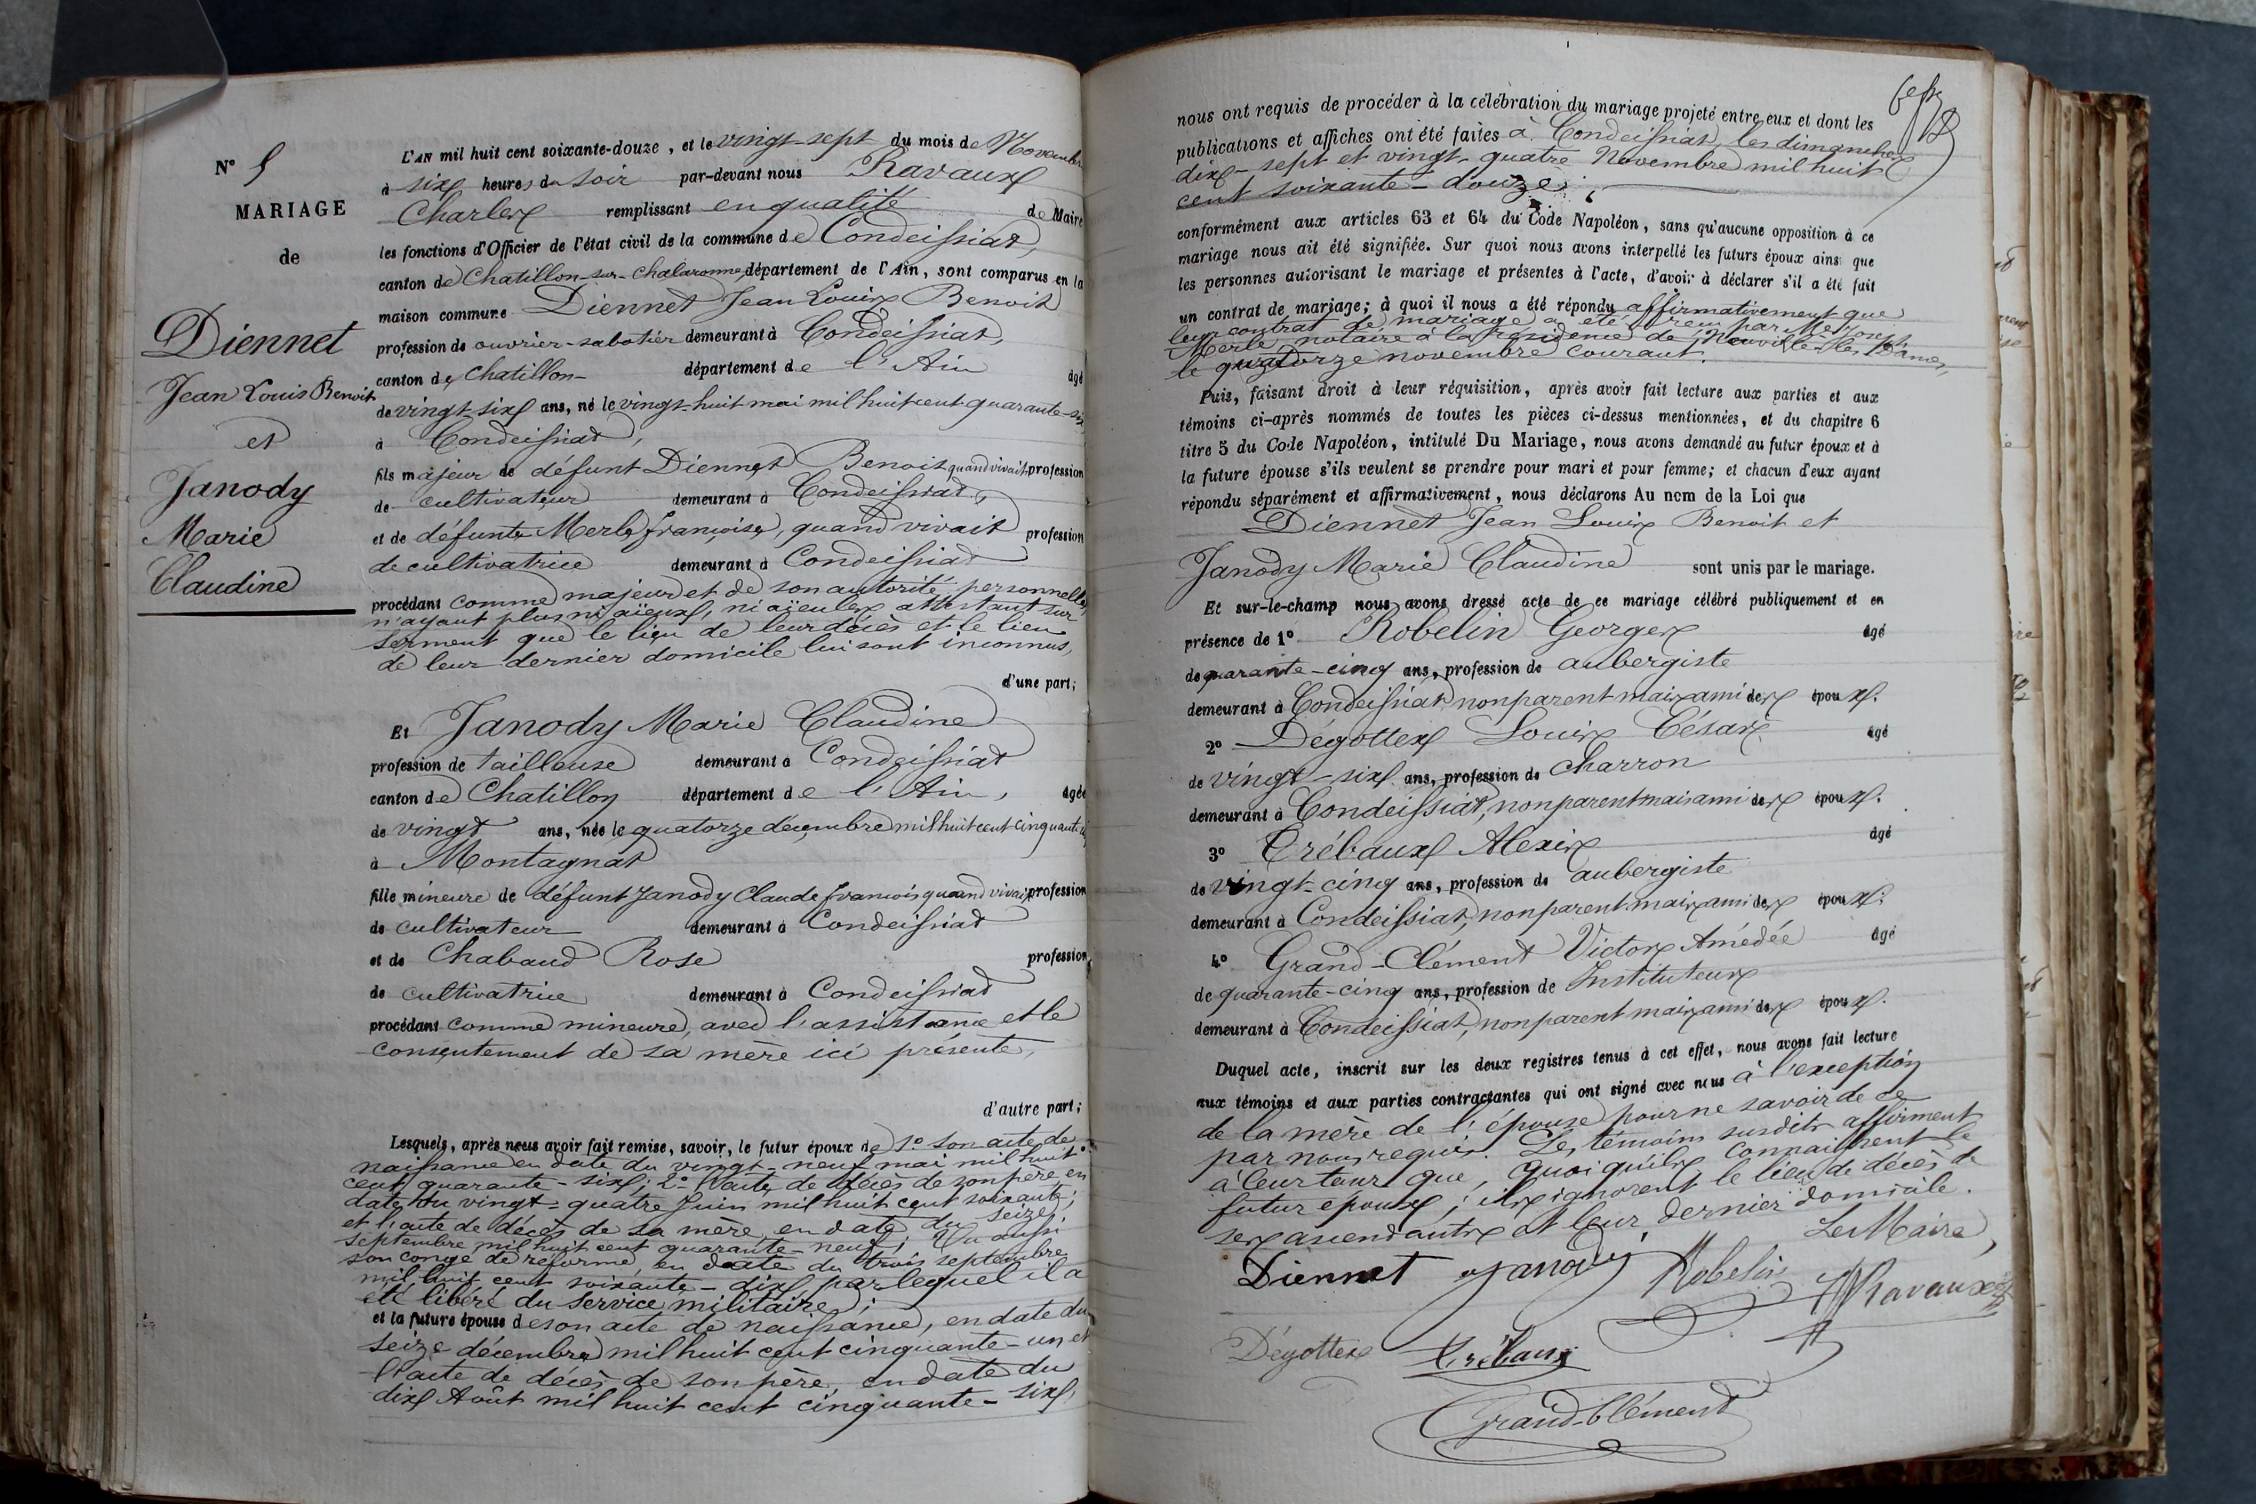 N° 5
MARIAGE
de
Diennet
Jean Louis Benoit
et
Janody
Marie
Claudine
L'AN mil huit cent soixante-douze, et le vingt-sept du mois de Novembre
à six heures du soir par-devant nous Ravaux
Charles remplissant en qualité de Maire
les fonctions d'Officier de l'état civil de la commune de Condeissiat,
canton de Chatillon-sur-Chalaronne, département de l'Ain, sont comparus en la
maison commune Diennet Jean Louis Benoit
profession de ouvrier-sabotier demeurant à Condeissiat,
canton de Chatillon- département de l'Ain âgé
de vingt-six ans, né le vingt-huit mai mil huit cent quarante-six
à Condeissiat,
fils majeur de défunt Diennet Benoit quand vivait profession
de cultivateur demeurant à Condeissiat,
et de défunte Merle françoise, quand vivait profession
de cultivatrice demeurant à Condeissiat
procédant comme majeur et de son autorité personnelle,
n'ayant plus ni aïeux, ni aïeules attestant sur
serment que le lieu de leur décès et le lieu
de leur dernier domicile lui sont inconnus,
d'une part;
Et Janody Marie Claudine
profession de tailleuse demeurant à Condeissiat
canton de Chatillon département de l'Ain, âgée
de vingt ans, née le quatorze décembre mil huit cent cinquante
à Montagnat
fille mineure de défunt Janody Claude francois quand vivait profession
de cultivateur demeurant à Condeissiat
et de Chabaud Rose profession
de cultivatrice demeurant à Condeissiat
procédant comme mineure, avec l'assistance et le
consentement de sa mère ici présente,
d'autre part;
Lesquels, après nous avoir fait remise, savoir, le futur époux de 1° son acte de
naissance en date du vingt-neuf mai mil huit
cent quarante-six; 2° l'acte de décès de son père en
date du vingt-quatre Juin mil huit cent soixante;
et l'acte de décès de sa mère, en date du seize
septembre mil huit cent quarante-neuf; Vu aussi
son congé de réforme, en date du trois septembre
mil huit cent soixante-dix, par lequel il a
été libéré du service militaire;
et la future épouse de son acte de naissance, en date du
seize décembre mil huit cent cinquante-un et
l'acte de décès de son père, en date du
dix Août mil huit cent cinquante-six,
nous ont requis de procéder à la célébration du mariage projeté entre eux et dont les
publications et affiches ont été faites à Condeissiat, les dimanches
dix-sept et vingt-quatre Novembre mil huit
cent soixante-douze;
conformément aux articles 63 et 64 du Code Napoléon, sans qu'aucune opposition à ce
mariage nous ait été signifiée. Sur quoi nous avons interpellé les futurs époux ainsi que
les personnes autorisant le mariage et présentes à l'acte, d'avoir à déclarer s'il a été fait
un contrat de mariage; à quoi il nous a été répondu affirmativement que
leur contrat de mariage a été reçu par Me
Merle, notaire à la résidence de Neuville-les-Dames,
le quatorze novembre courant.
Puis, faisant droit à leur réquisition, après avoir fait lecture aux parties et aux
témoins ci-après nommés de toutes les pièces ci-dessus mentionnées, et du chapitre 6
titre 5 du Code Napoléon, intitulé Du Mariage, nous avons demandé au futur époux et à
la future épouse s'ils veulent se prendre pour mari et pour femme; et chacun d'eux ayant
répondu séparément et affirmativement, nous déclarons Au nom de la Loi que
Diennet Jean Louis Benoit et
Janody Marie Claudine sont unis par le mariage.
Et sur-le-champ nous avons dressé acte de ce mariage célébré publiquement et en
présence de 1° Robelin Georges âgé
de quarante-cinq ans, profession de aubergiste
demeurant à Condeissiat non parent mais ami des époux.
2° Dégottex Louis César âgé
de vingt-six ans, profession de charron
demeurant à Condeissiat, non parent mais ami des époux.
3° Trébaux Alexis âgé
de vingt-cinq ans, profession de aubergiste
demeurant à Condeissiat, non parent mais ami des époux.
4° Grand-Clément Victor Amédée âgé
de quarante-cinq ans, profession de Instituteur
demeurant à Condeissiat, non parent mais ami des époux.
Duquel acte, inscrit sur les deux registres tenus à cet effet, nous avons fait lecture
aux témoins et aux parties contractantes qui ont signé avec nous à l'exception
de la mère de l'épouse pour ne savoir de ce
par nous requis. Les témoins susdits affirment
à leur tour que, quoiqu'ils connaissent le
futur époux, ils ignorent le lieu de décès de
ses ascendants et leur dernier domicile.
Le Maire,
Diennet Janody Robelin Ravaux
Dégottex Trébaux
Grand-Clément